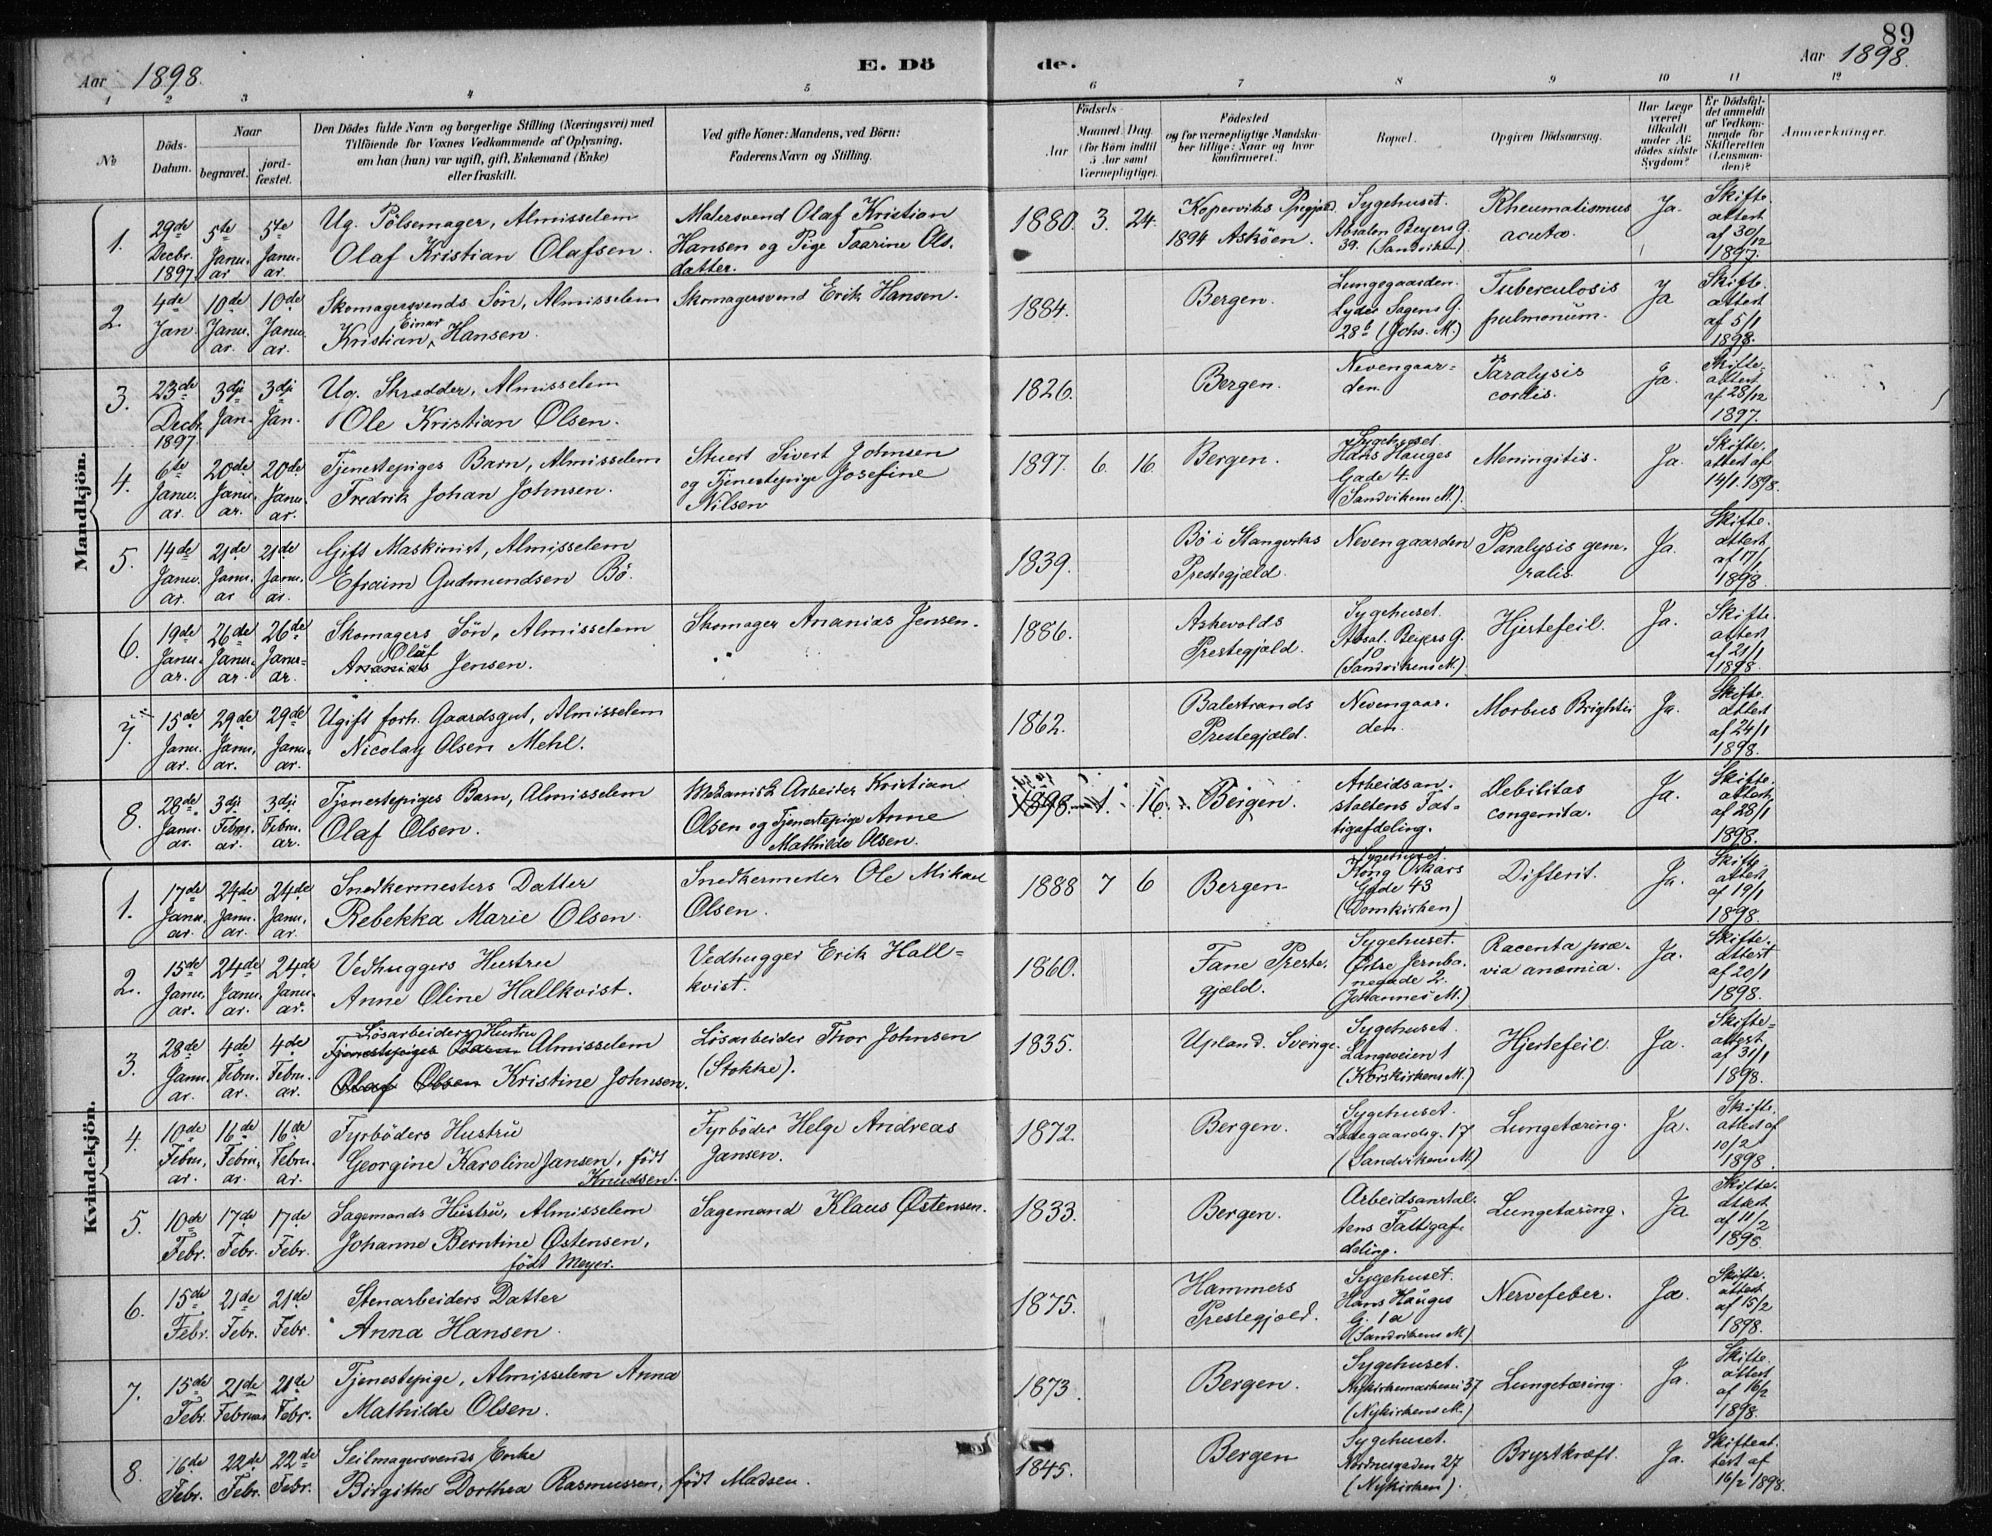 89
Aar 1898.
E. Dö de.
Aar 1898.
1 2 3 4 5 6 7 8 9 10 11 12
No
Döds-Datum.
Naar
begravet.
jordfæstet.
Den Dödes fulde Navn og borgerlige Stilling (Næringsvei) med
Tilföiende for Voxnes Vedkommende af Oplysning,
om han (hun) var ugift, gift, Enkemand (Enke)
eller fraskilt.
Ved gifte Koner: Mandens, ved Börn:
Faderens Navn og Stilling.
Födsels-
Aar
Maaned. Dag.
(for Börn indtil
5 Aar samt
Værnepligtige).
Födested
og for værnepligtige Mandskaber tillige: Naar og hvor
konfirmeret.
Bopæl.
Opgiven Dödsaarsag.
Har Læge
været
tilkaldt
under Afdödes sidste
Sygdom?
Er Dödsfaldet anmeldt
af Vedkommende for
Skifteretten
(Lensmanden)?
Anmærkninger.
Mandkjön.
1. 29de Decbr. 1897 5te Januar 5te Januar. Ug. Pölsemager, Almisselem Olaf Kristian Olafsen. Malersvend Olaf Kristian Hansen og Pige Taarine Olsdatter. 1880. 3. 24. Koperviks Prgjeld. 1894 Askøen. Sygehuset. Absalon Beyers G. 39. (Sandviken). Rheumatismus acuta. Ja. Skifteattest af 30/12 1897.
2. 4de Jan. 10de Januar. 10de Januar. Skomagersvends Sön, Almisselem Kristian Einar Hansen. Skomagersvend Erik Hansen. 1884. Bergen. Lungegaarden. Lyder Sagens G. 28b (Johs. M.) Tuberculosis pulmonum. Ja Skifteattest af 5/1 1898.
3. 23de Decbr. 1897 3dji Jan. 3dji Jan. Ug. Skrædder, Almisselem Ole Kristian Olsen. 1826. Bergen. Nevengaarden. Paralysis cordis. Ja. Skifteattest af 28/12 1897.
4. 6te Januar. 20de Januar. 20de Januar. Tjenestepiges Barn, Almisselem Fredrik Johan Johnsen. Stuert Sivert Johnsen og Tjenestepige Josefine Nilsen 1897. 6. 16. Bergen. Sygehuset. Hans Hauges Gade 4. (Sandvikens M.). Meningitis. Ja. Skifteattest af 14/1. 1898.
5. 14de Januar. 21de Januar 21de Januar. Gift Maskinist, Almisselem Efraim Gudmundsen Bö. 1839. Bö i Stangviks Prestegjæld. Nevengaarden Paralysis generalis. Ja. Skifteattest af 17/1 1898.
6. 19de Januar. 26de Januar. 26de Januar. Skomagers Sön, Almisselem Ananias Olaf Jensen. Skomager Ananias Jensen. 1886. Askevolds Prestegjæld. Sygehuset. Absal. Beyers G. 10 (Sandvikens M.). Hjertefeil. Ja. Skifteattest af 21/1 1898.
7. 15de Januar. 29de Januar. 29de Januar. Ugift forh. Gaardsgut, Almisselem Nicolay Olsen Mehl. 1862. Balestrands Prestegjæld. Nevengaarden. Morbus Brightii Ja. Skifteattest af 24/1 1898.
8. 28de Januar. 3dji Februar. 3dji Februar. Tjenestepiges Barn, Almisselem Olaf Olsen. Mekanisk Arbeider Kristian Olsen og Tjenestepige Anne Mathilde Olsen. 1898. 1. 16. Bergen. Arbeidsanstaltens Fattigafdeling. Debilitas congenita. Ja. Skifteattest af 28/1 1898.
Kvindekjön.
1. 17de Januar. 24de Januar. 24de Januar. Snedkermesters Datter Rebekka Marie Olsen. Snedkermester Ole Mikael Olsen. 1888 7 6 Bergen Sygehuset. Kong Oskars Gade 43 (Domkirken) Difterit. Ja. Skifteattest af 19/1 1898.
2. 15de Januar. 24de Januar. 24de Januar. Vedhuggers Hustru Anne Oline Hallkvist. Vedhugger Erik Hallkvist. 1860. Fane Prestegjæld. Sygehuset. Østre Jernbanegade 2. (Johannes M.) Racenta prævia anæmia. Ja. Skifteattest af 20/1 1898.
3. 28de Januar. 4de Februar. 4de Februar. Tjenestepiges Barn Lösarbeiders Hustru Almisselem Olaf Olsen Kristine Johnsen. Lösarbeider Thor Johnsen (Stokke). 1835. Upland. Sverige. Sygehuset. Langeveien 1 (Korskirkens M.) Hjertefeil. Ja. Skifteattest af 31/1 1898.
4. 10de Februar. 16de Februar. 16de Februar. Fyrböders Hustru Georgine Karoline Jansen, födt Knudsen. Fyrböder Helge Andreas Jansen. 1872. Bergen. Sygehuset. Ladegaardsg. 17 (Sandvikens M.) Lungetæring. Ja. Skifteattest af 10/2 1898.
5. 10de Febr. 17de Febr. 17de Febr. Sagemands Hustru, Almisselem Johanne Berntine Østensen, födt Meyer. Sagemand Klaus Østensen. 1833. Bergen. Arbeidsanstaltens Fattigafdeling. Lungetæring. Ja Skifteattest af 11/2 1898.
6. 15de Febr. 21de Febr. 21de Febr. Stenarbeiders Datter Anna Hansen. 1875. Hammers Prestegjæld. Sygehuset. Hans Hauges G. 1a (Sandvikens M) Nervefeber. Ja. Skifteattest af 15/2 1898.
7. 15de Febr. 21de Februar 21de Febr. Tjenestepige, Almisselem Anna Mathilde Olsen. 1873. Bergen. Sygehuset. Nykirkemarkevei 37 (Nykirkens M.) Lungetæring. Ja. Skifteattest af 16/2 1898.
8. 16de Febr. 22de Febr. 22de Febr. Seilmagersvends Enke Birgithe Dorthea Rasmussen, födt Madsen. 1845. Bergen Sygehuset. Nordnesgaden 27 (Nykirken). Brystkræft. Ja. Skifteattest af 16/2 1898.